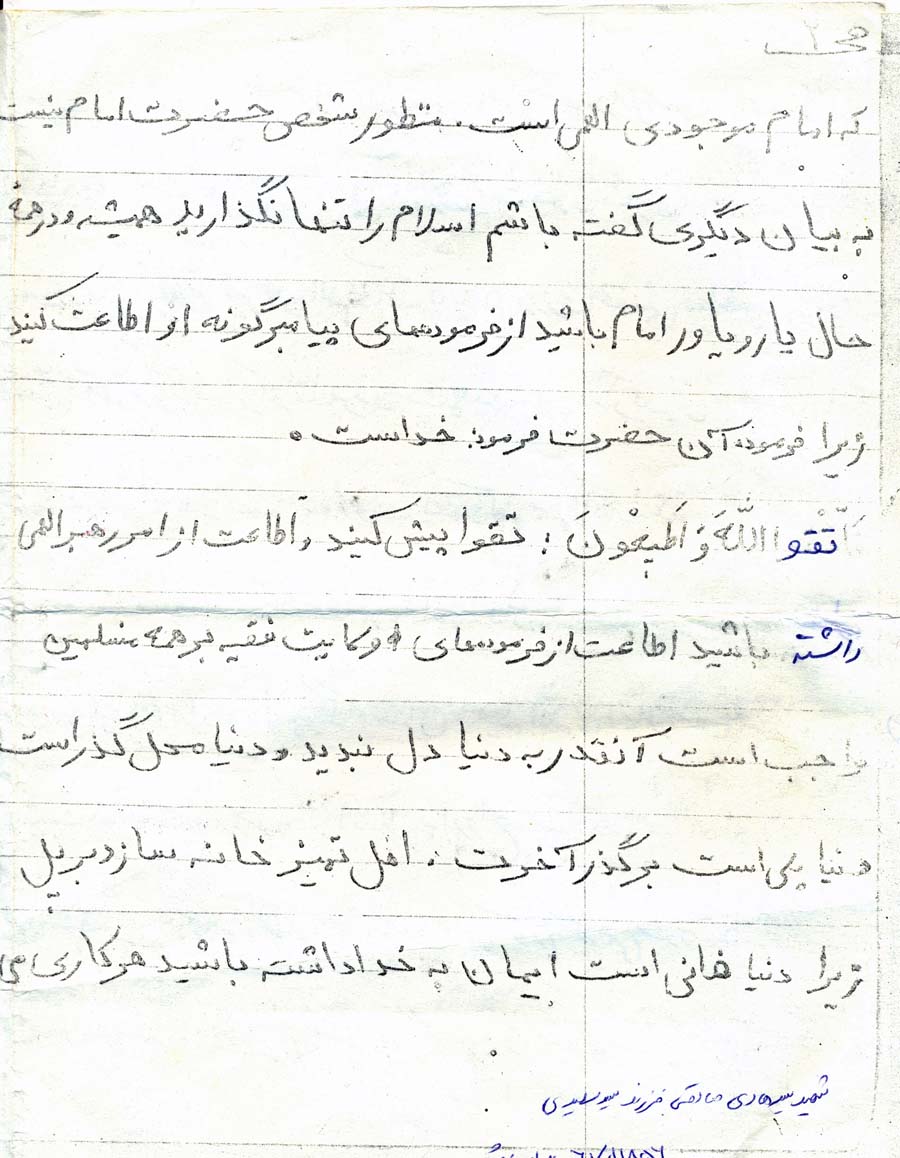 ص ۲
که امام موجودی الهی است. منظور شخص حضرت امام نیست
به بیان دیگری گفته باشم اسلام را تنها نگذارید همیشه و در همهٔ
حال یار و یاور امام باشید از فرمودهای پیامبرگونه او اطاعت کنید
زیرا فرموده آن حضرت فرموده خداست.
اتَّقُوا اللَّهَ وَ أَطیعُونَ : تقوا پیش کنید و اطاعت از امر رهبر الهی
داشته باشید اطاعت از فرمودهای ولایت فقیه بر همه مسلمین
واجب است آنقدر به دنیا دل نبدید و دنیا محل گذر است
دنیا پلی است بر گذر آخرت. اهل تمیز خانه سازد بر پل
زیرا دنیا فانی است ایمان به خدا داشته باشید هر کاری می
شهید هادی صادقی فرزند